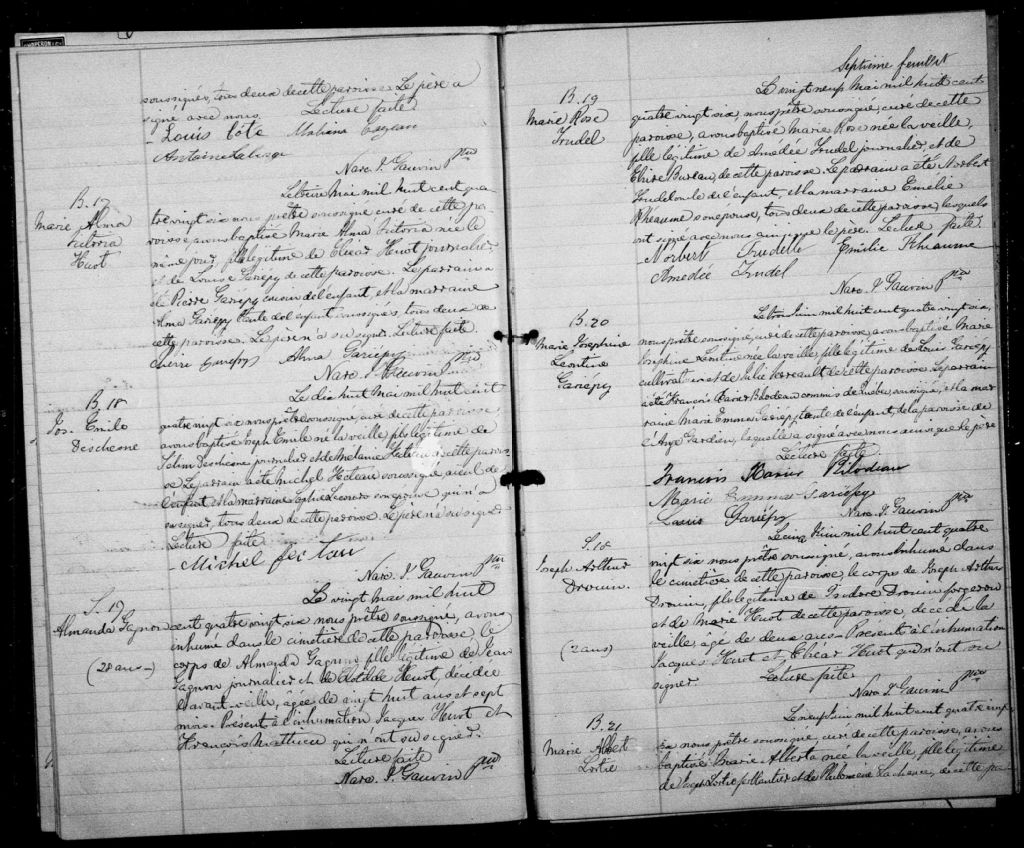 soussignés, tous deux de cette paroisse. Le père a
signé avec nous. Lecture faite
Louis Côté
Antoine Laberge
Narc. I. Gauvin ptre
B. 17
Marie Alma
Victoria
Huot
Le treize mai mil huit cent qua
tre vingt six nous prêtre soussigné curé de cette pa
roisse avons baptisé Marie Alma Victoria née le
même jour, fille légitime de Eléar Huot journalier
et de Louise Gariépy de cette paroisse. Le parrain a
été Pierre Gariépy cousin de l'enfant, et la marraine
Alma Gariépy tante de l'enfant soussignés, tous deux de
cette paroisse. Le père n'a su signer. Lecture faite.
Gariepy Alma Gariépy
Narc. I. Gauvin ptre
B. 18
Jos. Emile
Deschesne
Le dix huit mai mil huit cent
quatre vingt six nous prêtre soussigné, curé de cette paroisse,
avons baptisé Joseph Emile né la veille fils légitime de
Deschesne journalier et de Mélanie de cette parois-
se. Le parrain a été Michel soussigné, aïeul de
l'enfant et la marraine Sophie son épouse qui n'a
su signer, tous deux de cette paroisse. Le père n'a su signer.
Lecture faite
Michel
Narc. I. Gauvin ptre
S. 17
Almanda Gagnon
(28 ans)
Le vingt mai mil huit
cent quatre vingt six nous prêtre soussigné, avons
inhumé dans le cimetière de cette paroisse, le
corps de Almanda Gagnon fille légitime de Jean
Gagnon journalier et de Clotilde Huot, décédée
l'avant-veille, âgée de vingt huit ans et sept
mois. Présent à l'inhumation Jacques Huot et
François Mathieu qui n'ont su signer.
Lecture faite
Narc. I. Gauvin ptre
Septième feuillet
B. 19
Marie Rose
Trudel
Le vingt neuf mai mil huit cent
quatre vingt six, nous prêtre soussigné, curé de cette
paroisse, avons baptisé Marie Rose née la veille,
fille légitime de Amédée Trudel journalier, et de
Elzire Bureau, de cette paroisse. Le parrain a été Norbert
Trudel oncle de l'enfant, et la marraine Emélie
Rheaume son épouse, tous deux de cette paroisse, lesquels
ont signé avec nous ainsi que le père. Lecture faite.
Norbert Trudelle Emilie Rheaume
Amedée Trudel
Narc. I. Gauvin ptre
B. 20
Marie Josephine
Léontine
Gariépy
Le trois juin mil huit cent quatre vingt six,
nous prêtre soussigné, curé de cette paroisse, avons baptisé Marie
Josephine Léontine née la veille, fille légitime de Louis Gariépy
cultivateur et de Julie Verreault de cette paroisse. Le parrain
a été François Xavier Bilodeau commis de Québec, soussigné, et la mar
raine Marie Emma Gariépy tante de l'enfant, de la paroisse de
L'Ange Gardien, laquelle a signé avec nous ainsi que le père
Lecture faite
François Xavier Bilodeau
Marie Emma Gariépy
Louis Gariépy Narc. I. Gauvin ptre
S. 18
Joseph Arthur
Drouin.
(2 ans)
Le cinq Juin mil huit cent quatre
vingt six nous prêtre soussigné, avons inhumé dans
le cimetière de cette paroisse, le corps de Joseph Arthur
Drouin, fils légitime de Isidore Drouin forgeron
et de Marie Huot de cette paroisse, décédé la
veille, âgé de deux ans. Présents à l'inhumation
Jacques Huot et Eléar Huot qui n'ont su
signer. Lecture faite
Narc. I. Gauvin ptre
B. 21
Marie Albert
Lortie
Le neuf juin mil huit cent quatre vingt
six nous prêtre soussigné, curé de cette paroisse, avons
baptisé Marie Alberta née la veille, fille légitime
de Joseph Lortie ferblantier et de Philomène Lachance, de cette pa